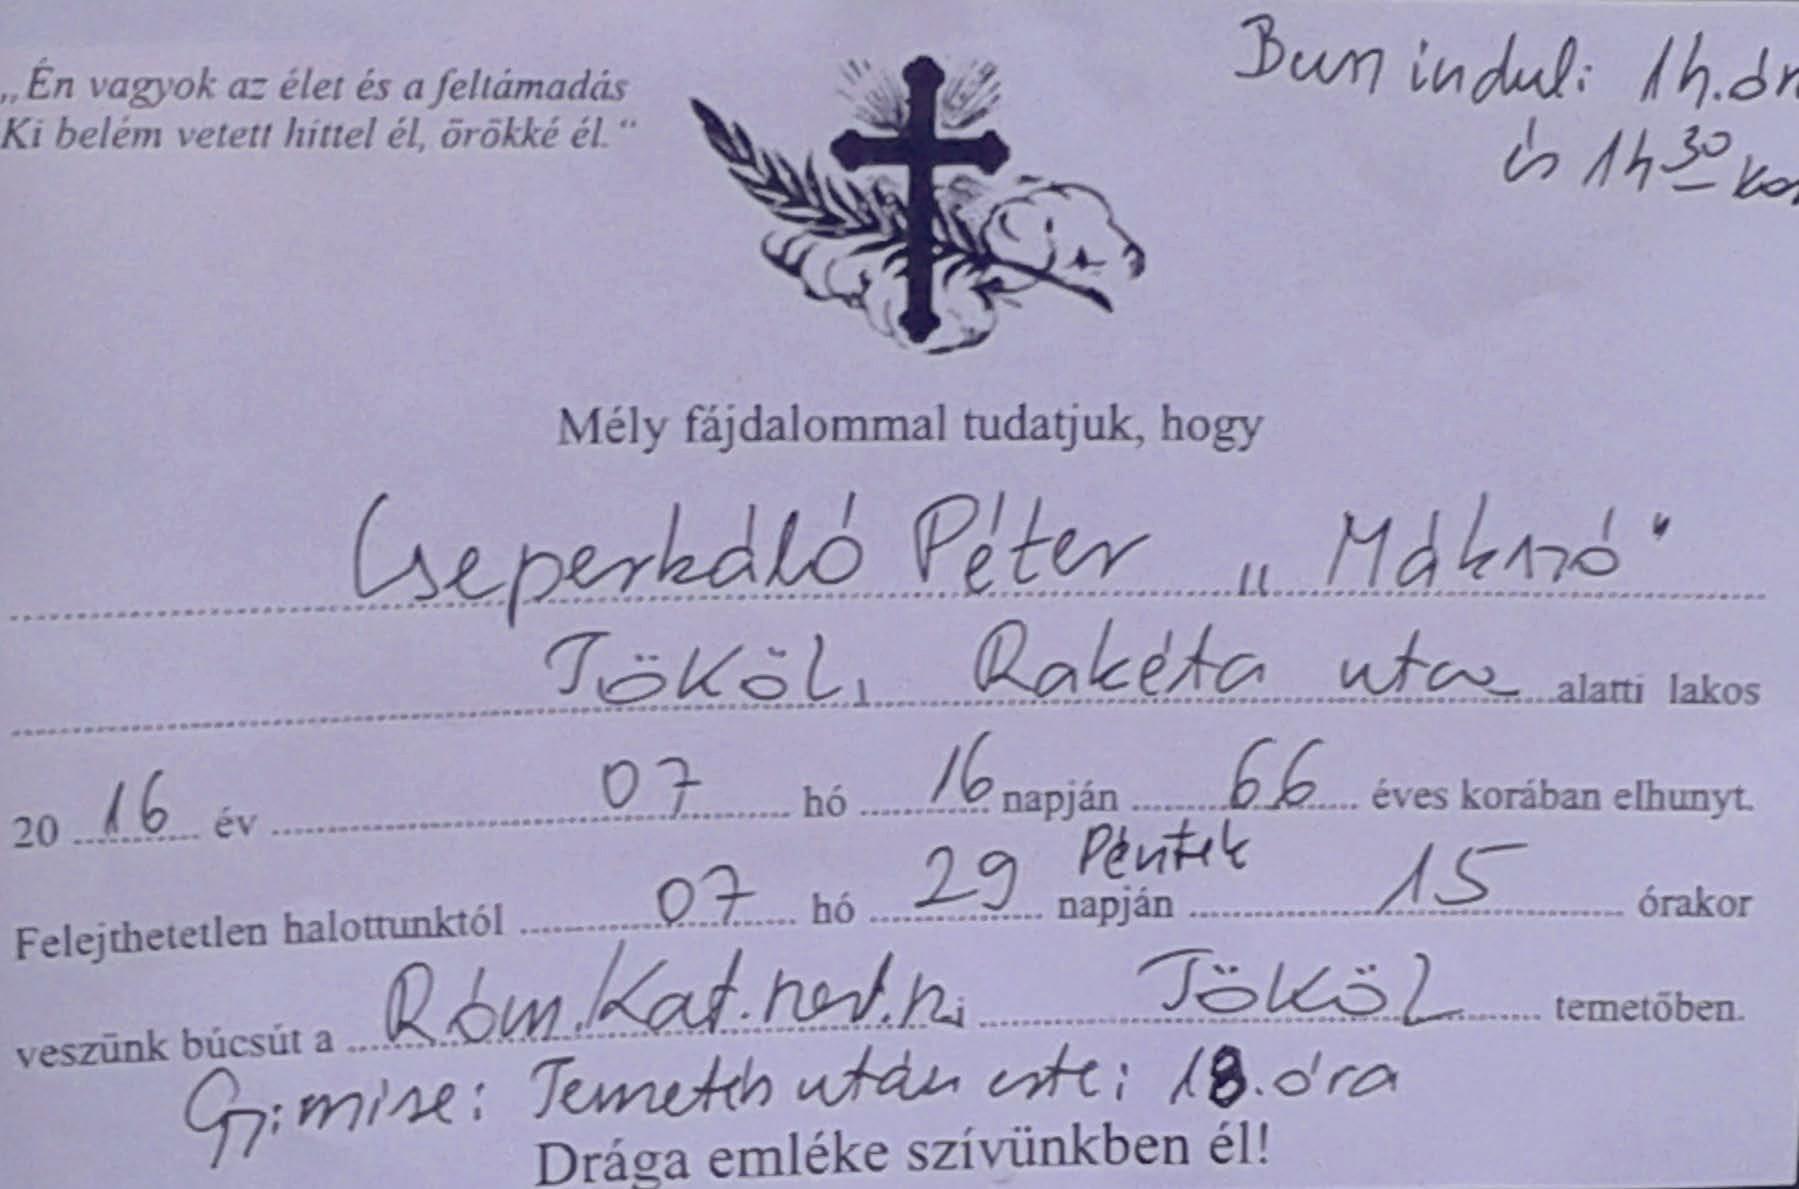 „Én vagyok az élet és a feltámadás
Ki belém vetett hittel él, örökké él.“
Busz indul: 14.ór
és 14 30 kor
Mély fájdalommal tudatjuk, hogy
Cseperkáló Péter „Máknzó"
Tököl, Rakéta utca alatti lakos
20 16 év 07 hó 16 napján 66 éves korában elhunyt.
Péntek
Felejthetetlen halottunktól 07 hó 29 napján 15 órakor
veszünk búcsút a Róm.Kat. Tököl temetőben.
Gy.mise: Temetés után este: 18.óra
Drága emléke szívünkben él!